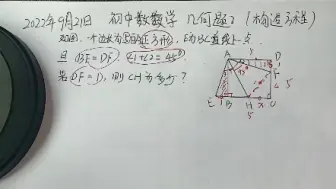 2022年9月21日 初中数学 几何题2 (构造方程)
如图,一个边长为5的正方形, E为BC直线上一点
且 BE=DF, ∠1+∠2=45°
若DF=1, 则CH为多少?
A
D
1
F
4
5
E
B
H
x
C
5